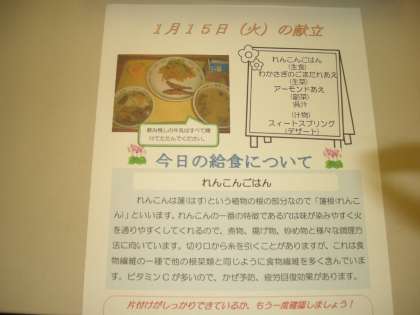 1月15日（火）の献立
れんこんごはん
(主食)
わかさぎのごまだれあえ
(主菜)
アーモンドあえ
(副菜)
呉汁
(汁物)
スィートスプリング
(デザート)
飲み残しの牛乳はすべて開
けてたたんでください。
今日の給食について
れんこんごはん
れんこんは蓮(はす)という植物の根の部分なので「蓮根(れんこ
ん)」といいます。れんこんの一番の特徴である穴は味が染みやすく火
を通りやすくしてくれるので、煮物、揚げ物、炒め物と様々な調理方
法に向いています。切り口から糸を引くことがありますが、これは食
物繊維の一種で他の根菜類と同じように食物繊維を多く含んでいま
す。ビタミンCが多いので、かぜ予防、疲労回復効果があります。
片付けがしっかりできているか、もう一度確認しましょう！